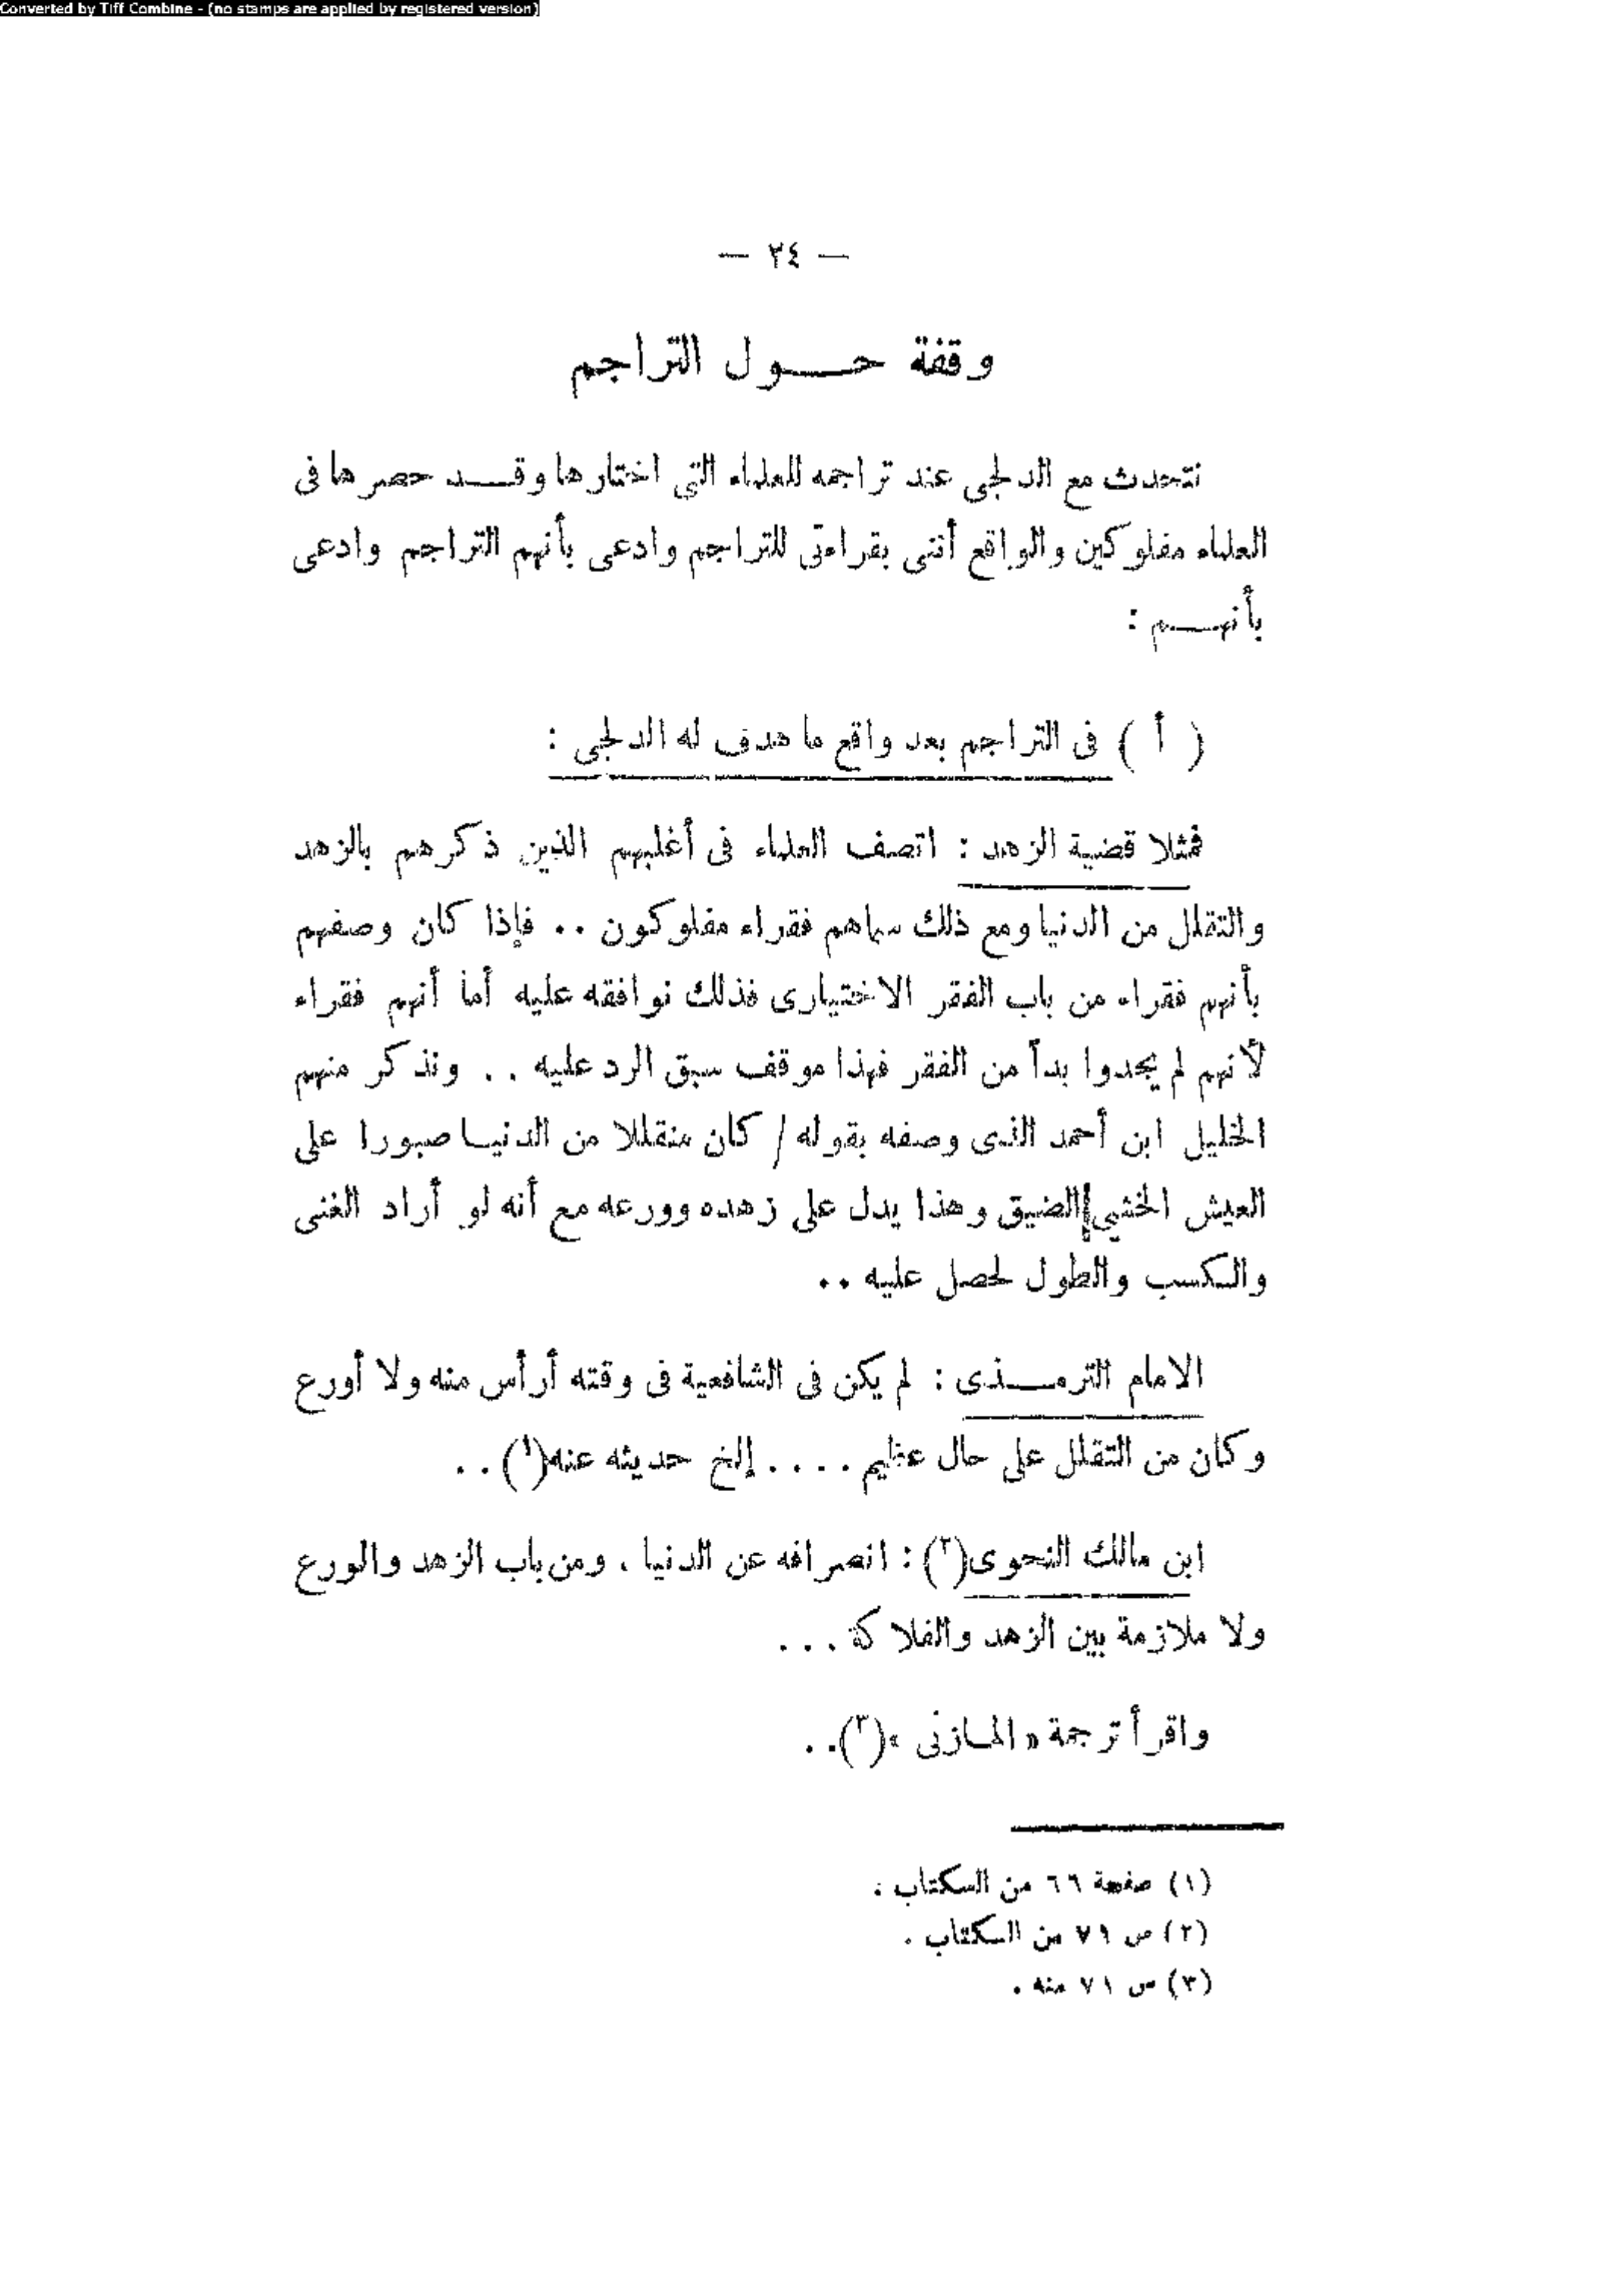 Converted by Tiff Combine - (no stamps are applied by registered version)
— ٢٤ —
وقفة حـــول التراجم
نتحدث مع الدلجى عند تراجمه للعلماء التى اختارها وقـــد حصرها فى
العلماء مفلوكين والواقع أننى بقراءتى للتراجم وادعى بأنهم التراجم وادعى
بأنهـــم :
( أ ) فى التراجم بعد واقع ما هدف له الدلجى :
فمثلا قضية الزهد : اتصف العلماء فى أغلبهم الذين ذكرهم بالزهد
والتقلل من الدنيا ومع ذلك سماهم فقراء مفلوكون .. فإذا كان وصفهم
بأنهم فقراء من باب الفقر الاختيارى فذلك نوافقه عليه أما أنهم فقراء
لأنهم لم يجدوا بداً من الفقر فهذا موقف سبق الرد عليه .. ونذكر منهم
الخليل ابن أحمد الذى وصفه بقوله / كان متقللا من الدنيـا صبورا على
العيش الخشبى الضيق وهذا يدل على زهده وورعه مع أنه لو أراد الغنى
والكسب والطول لحصل عليه ..
الامام الترمـــذى : لم يكن فى الشافعية فى وقته أرأس منه ولا أورع
وكان من التقلل على حال عظيم .... إلخ حديثه عنه(١) ..
ابن مالك النحوى(٢) : انصرافه عن الدنيا ، ومن باب الزهد والورع
ولا ملازمة بين الزهد والفلاكة ...
واقرأ ترجمة « المـازنى »(٣)..
(١) صفحة ٦٦ من الكتاب .
(٢) ص ٧٩ من الكتاب .
(٣) ص ٧١ منه .